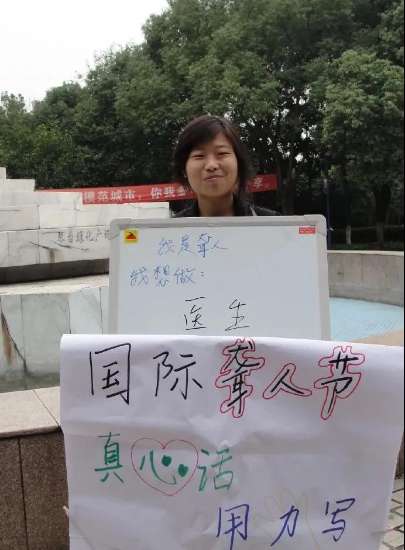 模范城市，你我
享。
我是聋人
我想做：
医生
国际聋人节
真心话
用力写